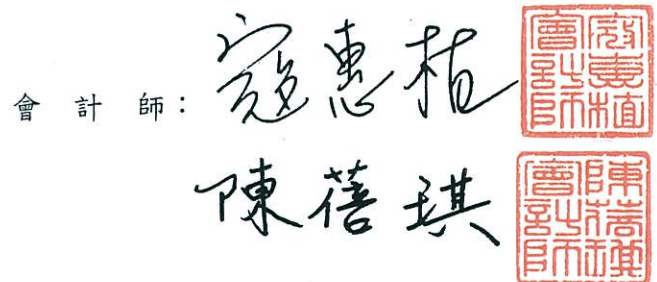 會計師：寇惠植
寇惠植會計師
陳蓓琪
陳蓓琪會計師